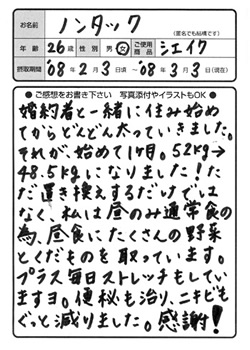 お名前 ノンタック
(匿名でも結構です)
年齢 26歳 性別 男・女 ご使用商品 シェイク
摂取期間 '08年2月3日頃~'08年3月3日(現在)
●ご感想をお書き下さい 写真添付やイラストもOK●
婚約者と一緒に住み始め
てからどんどん太っていきました。
それが、始めて1ヶ月。52kg→
48.5kgになりました!ただ
だ置き換えするだけでは
なく、私は昼のみ通常食の
為、昼食にたくさんの野菜
とくだものを取っています。
プラス毎日ストレッチもしてい
ますヨ。便秘も治り、ニキビも
ぐっと減りました。感謝!